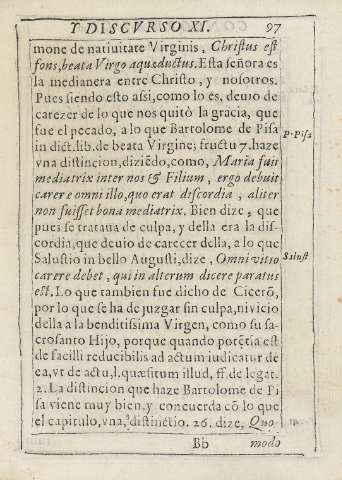 Y DISCVRSO XI. 97
mone de natiuitate Virginis, Christus est
fons, beata Virgo aquæductus. Esta señora es
la medianera entre Christo, y nosotros.
Pues siendo esto assi, como lo es, deuio de
carezer de lo que nos quitò la gracia, que
fue el pecado, a lo que Bartolome de Pisa
P. Pisa
in dict. lib. de beata Virgine; fructu 7. haze
vna distincion, diziẽdo, como, Maria fuit
mediatrix inter nos & Filium, ergo debuit
carere omni illo, quo erat discordia, aliter
non fuisset bona mediatrix. Bien dize, que
pues se trataua de culpa, y della era la dis-
cordia, que deuio de carecer della, a lo que
Salustio in bello Augusti, dize, Omni vitio
Salust
carere debet, qui in alterum dicere paratus
est. Lo que tambien fue dicho de Cicerõ,
por lo que se ha de juzgar sin culpa, ni vicio
della a la benditissima Virgen, como su sa-
crosanto Hijo, porque quando potẽtia est
de facili reducibilis ad actum iudicatur de
ea, vt de actu, l. quæsitum illud, ff. de legat.
2. La distincion que haze Bartolome de Pi
sa viene muy bien, y concuerda cõ lo que
el capitulo, vna, distinctio. 26. dize, Quo-
Bb modo